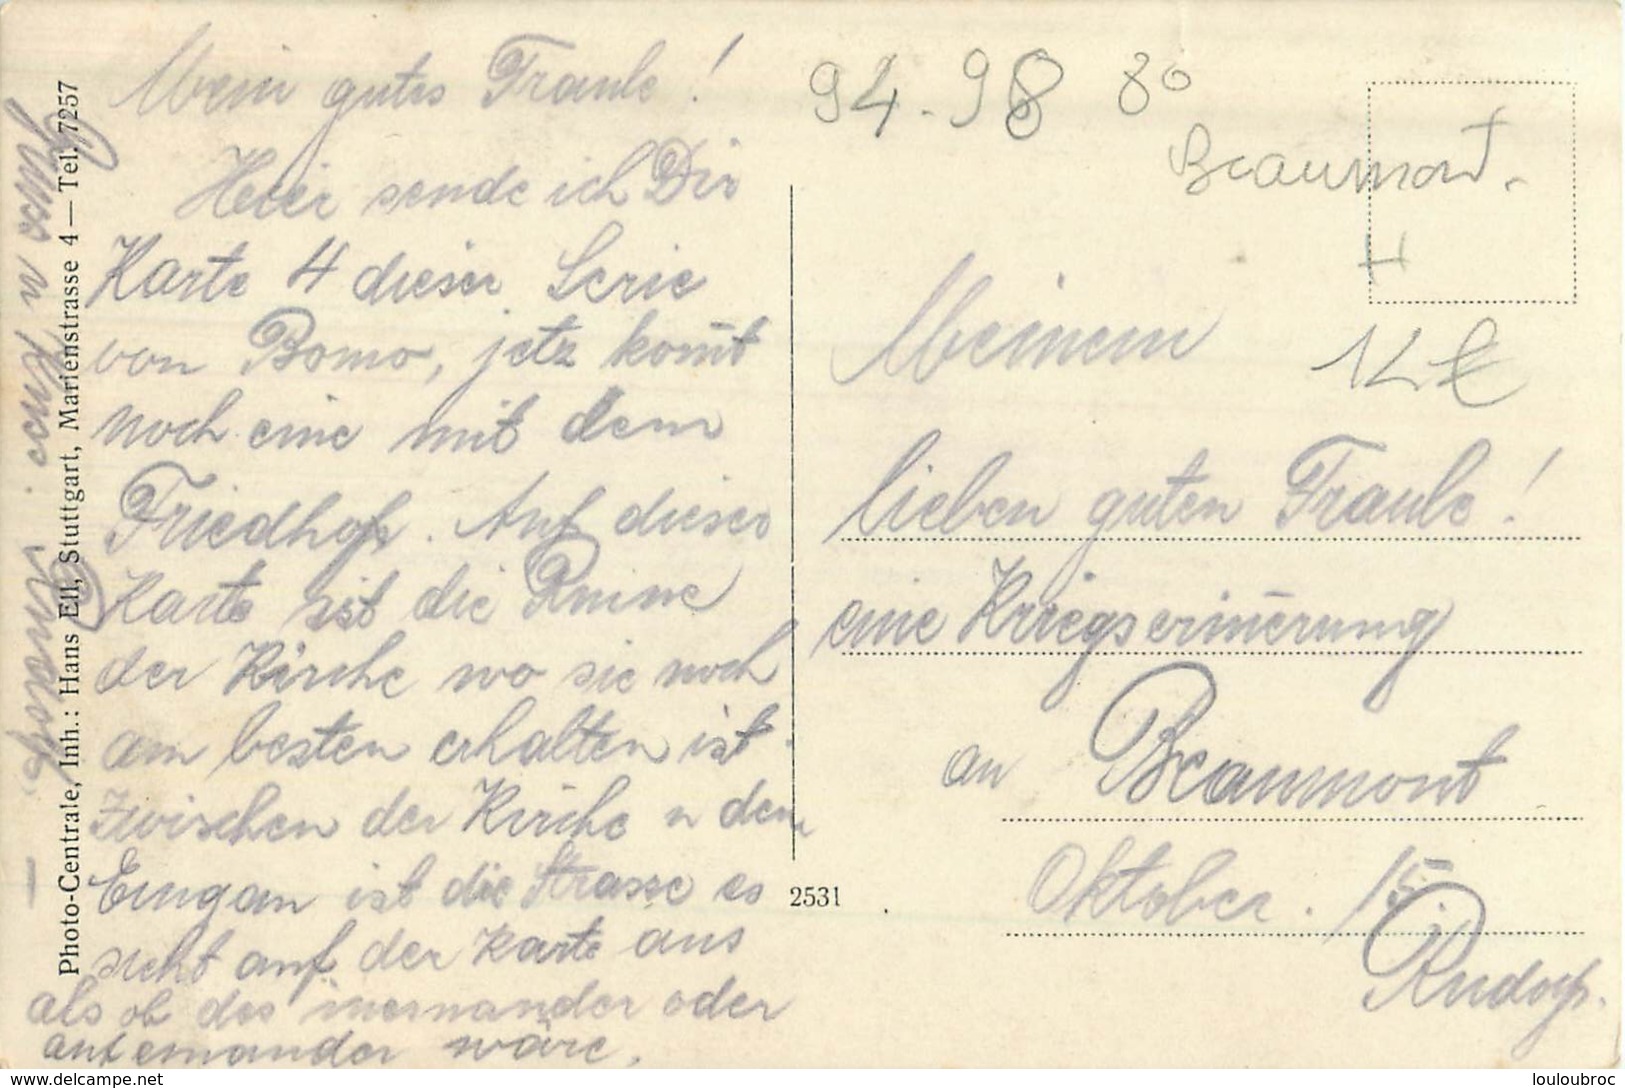 Mein gutes Fraule!
Heier sende ich Dir
Karte 4 dieser Serie
von Bomo, jetz kom̄t
noch eine mit dem
Friedhof. Auf dieser
Karte ist die Ruine
der Kirche wo sie noch
am besten erhalten ist.
Zwischen der Kirche u dem
Eingan ist die Strasse es
sieht auf der Karte aus
als ob des ineinander oder
aufeinander wäre.
Gruss u Kuss
Rudolf.
Photo-Centrale, Inh.: Hans Ell, Stuttgart, Marienstrasse 4 — Tel. 7257
2531
94-98 80
Beaumont.
12 €
Meinem
lieben guten Fraule!
eine Kriegserin̄erung
an Beaumont
Oktober. 15
Rudolf.
delcampe.net
louloubroc